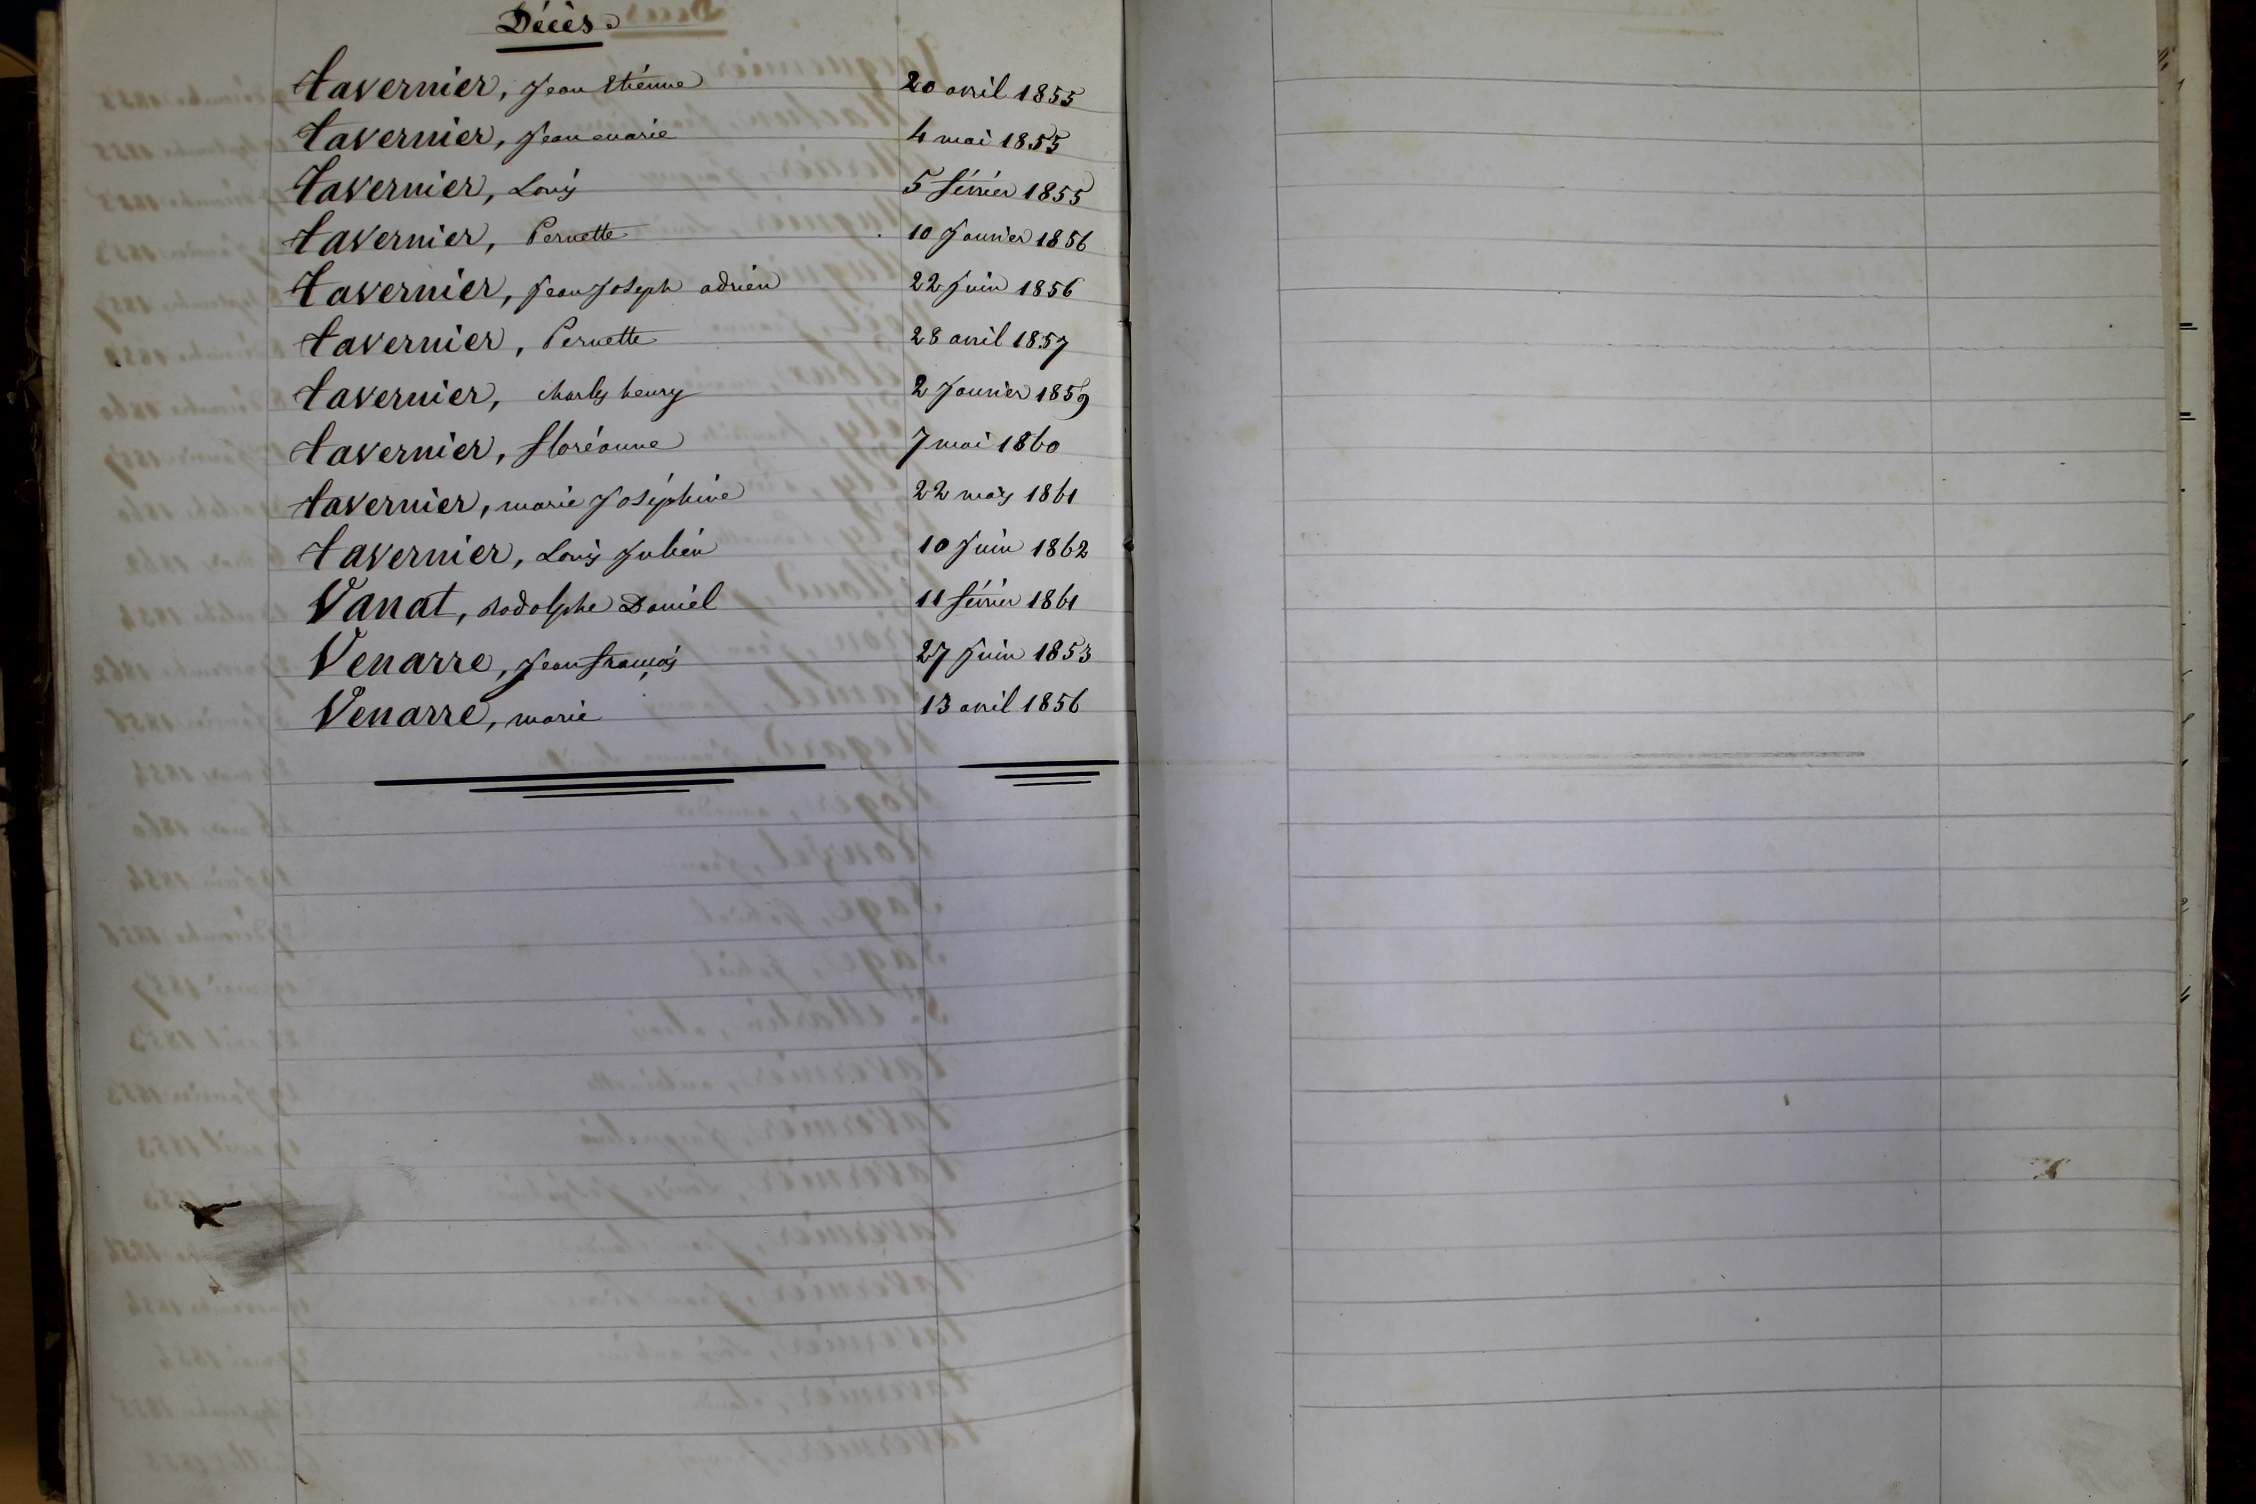 Décès.
Tavernier, Jean Etienne 20 avril 1855
Tavernier, Jean marie 4 mai 1855
Tavernier, Louis 5 février 1855
Tavernier, Pernette 10 Janvier 1856
Tavernier, Jean Joseph adrien 22 Juin 1856
Tavernier, Pernette 28 avril 1857
Tavernier, charles henry 2 Janvier 1859
Tavernier, floréanne 7 mai 1860
Tavernier, marie Joséphine 22 mars 1861
Tavernier, Louis Julien 10 Juin 1862
Vanat, Rodolphe Daniel 11 février 1861
Venarre, Jean françois 27 Juin 1853
Venarre, marie 13 avril 1856